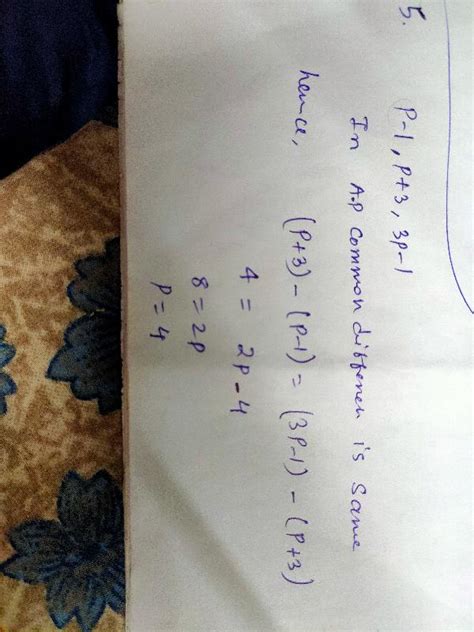 5.
P-1, P+3, 3P-1
In A.P common diffenen is same
hence, (P+3) - (P-1) = (3P-1) - (P+3)
4 = 2P-4
8 = 2P
P = 4